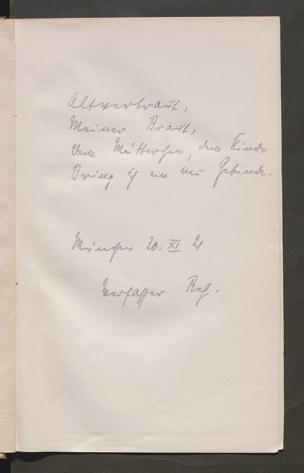 Altvertraut,
Meiner Braut,
Dem Mütterchen, dem Kinde
Bring ich ein neu Gebinde.
München 20. XI 21
Verfasser